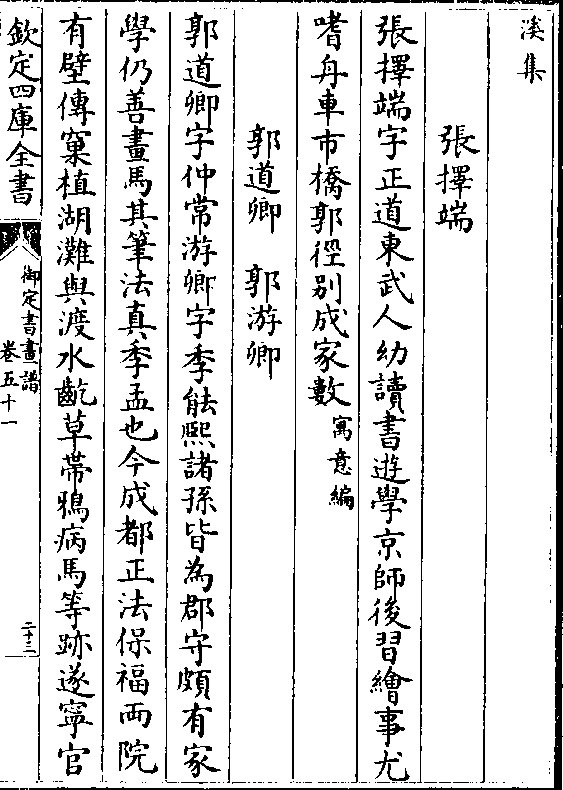 溪集
張擇端
張擇端字正道東武人幼讀書遊學京師後習繪事尤
嗜舟車市橋郭徑別成家數寓意編
郭道卿　郭游卿
郭道卿字仲常游卿字季能熙諸孫皆為郡守頗有家
學仍善畫馬其筆法真季孟也今成都正法保福两院
有壁傳窠植湖灘與渡水齕草帶鴉病馬等跡遂寧官
欽定四庫全書
御定書畫譜
卷五十一
二十三